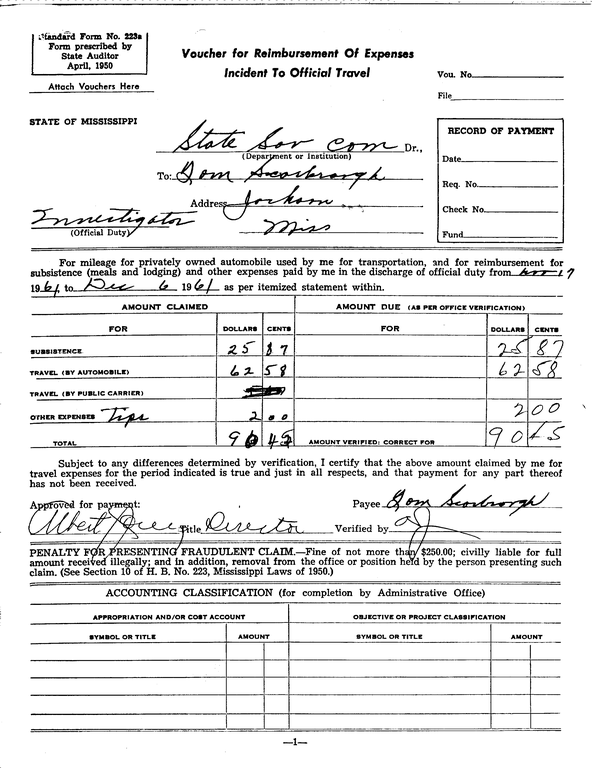 Standard Form No. 223a
Form prescribed by
State Auditor
April, 1950
Attach Vouchers Here
Voucher for Reimbursement Of Expenses
Incident To Official Travel
Vou. No.
File
STATE OF MISSISSIPPI
State Sov Com Dr.,
(Department or Institution)
To: Tom Scarbrough
Address Jackson
Investigator Miss
(Official Duty)
RECORD OF PAYMENT
Date
Req. No.
Check No.
Fund
For mileage for privately owned automobile used by me for transportation, and for reimbursement for
subsistence (meals and lodging) and other expenses paid by me in the discharge of official duty from 17
1961, to Dec 6 1961 as per itemized statement within.
AMOUNT CLAIMED AMOUNT DUE (AS PER OFFICE VERIFICATION)
FOR DOLLARS CENTS FOR DOLLARS CENTS
SUBSISTENCE 25 87 25 87
TRAVEL (BY AUTOMOBILE) 62 58 62 58
TRAVEL (BY PUBLIC CARRIER)
OTHER EXPENSES Tips 2 00 2 00
TOTAL 90 45 AMOUNT VERIFIED; CORRECT FOR 90 45
Subject to any differences determined by verification, I certify that the above amount claimed by me for
travel expenses for the period indicated is true and just in all respects, and that payment for any part thereof
has not been received.
Approved for payment: Payee Tom Scarbrough
Albert Title Director Verified by
PENALTY FOR PRESENTING FRAUDULENT CLAIM.—Fine of not more than $250.00; civilly liable for full
amount received illegally; and in addition, removal from the office or position held by the person presenting such
claim. (See Section 10 of H. B. No. 223, Mississippi Laws of 1950.)
ACCOUNTING CLASSIFICATION (for completion by Administrative Office)
APPROPRIATION AND/OR COST ACCOUNT OBJECTIVE OR PROJECT CLASSIFICATION
SYMBOL OR TITLE AMOUNT SYMBOL OR TITLE AMOUNT
—1—